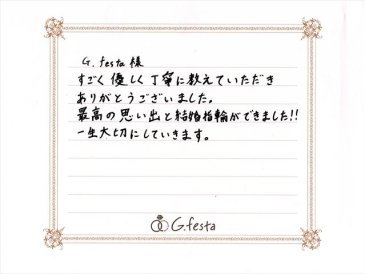 G.festa 様
すごく優しく丁寧に教えていただき
ありがとうございました。
最高の思い出と結婚指輪ができました!!
一生大切にしていきます。
G.festa